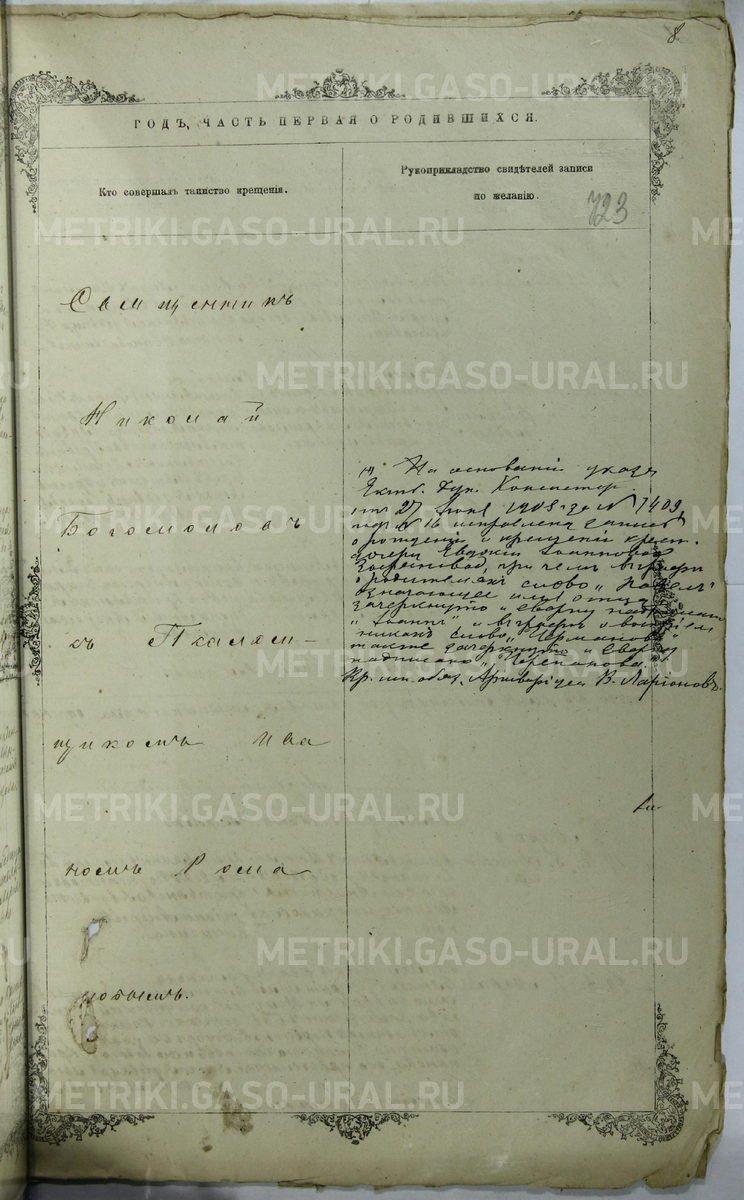 8.
ГОДЪ, ЧАСТЬ ПЕРВАЯ О РОДИВШИХСЯ.
Кто совершалъ таинство крещенія.
Рукоприкладство свидѣтелей записи
по желанію.
723
Священникъ
Николай
Богомоловъ
съ Псалом-
щикомъ Ива
номъ Рома
новымъ.
На основаніи указа
Екат. Дух. Консистор.
отъ 27 Іюня 1908 г. за № 7409
№ 16 исправлена запись
о рожденіи и крещеніи крест.
дочери Евдокіи Іоанновой
при чемъ въ графѣ
о родителяхъ слово „Павелъ"
означающее имя отца
зачеркнуто и сверху надписано
„Іоаннъ" и въ графѣ о воспріем
никахъ слово „Германова"
также зачеркнуто и сверху
надписано „Черепанова".
Архиваріуса В. Ларіоновъ.
METRIKI.GASO-URAL.RU